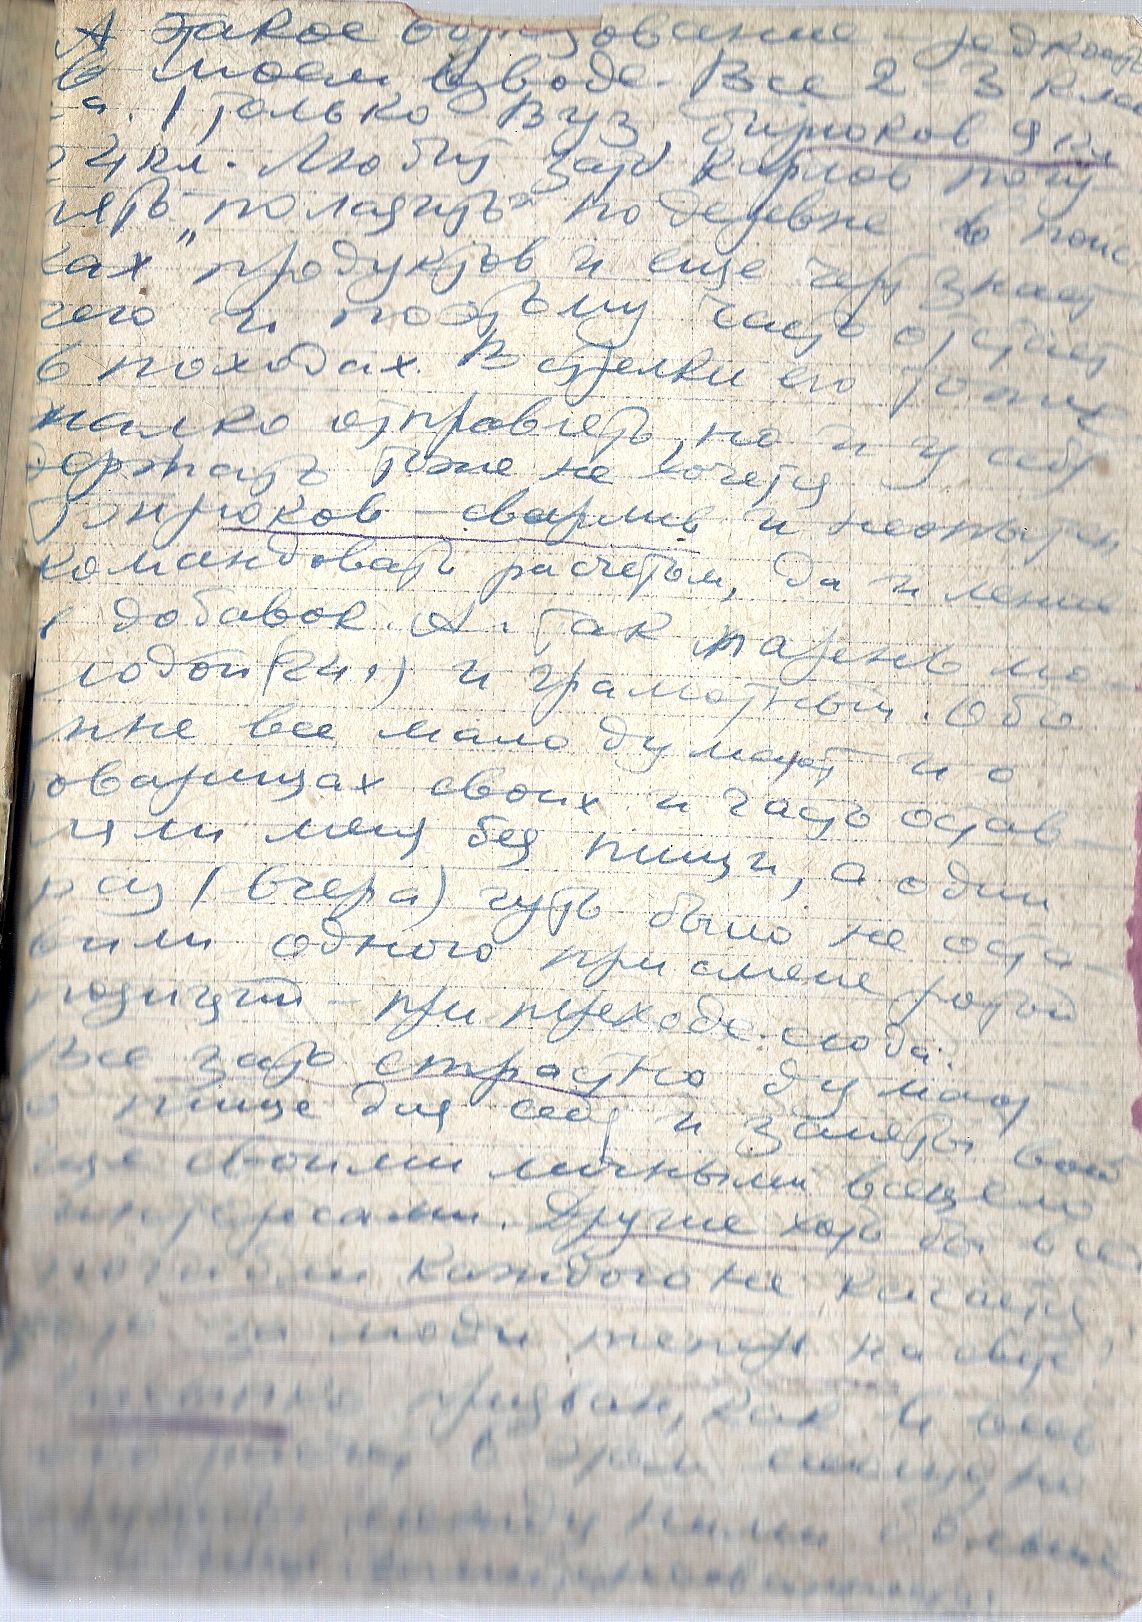 А такое образование – редкость
в моем взводе. Все 2–3 кла
са. 1 только ВУЗ, Бирюков 9 кл
4 кл. Любит зато Карлов погу
лять „полазить" по деревне в поис
ках продуктов и еще черт знает
чего и поэтому часто отстает
в походах. В стрелки его тоже
жалко отправлять, но и у себя
держать тоже не хочется
Бирюков – сварлив и неопытен
командовать расчетом, да и ленив
в добавок. А так парень мо
лодой (24 г) и грамотный. Обо
мне все мало думают и о
товарищах своих и часто остав
ляли меня без пищи, а один
раз (вчера) чуть было не оста
вили одного при смене ротой
позиций – при переходе сюда.
Все зато страстно думают
о пище для себя и заняты вооб
ще своими личными всецело
интересами. Другие хоть бы все
погибли каждого не касается
люди теперь на свете!
призван, как и весь
в этом месяце но
между ними больше